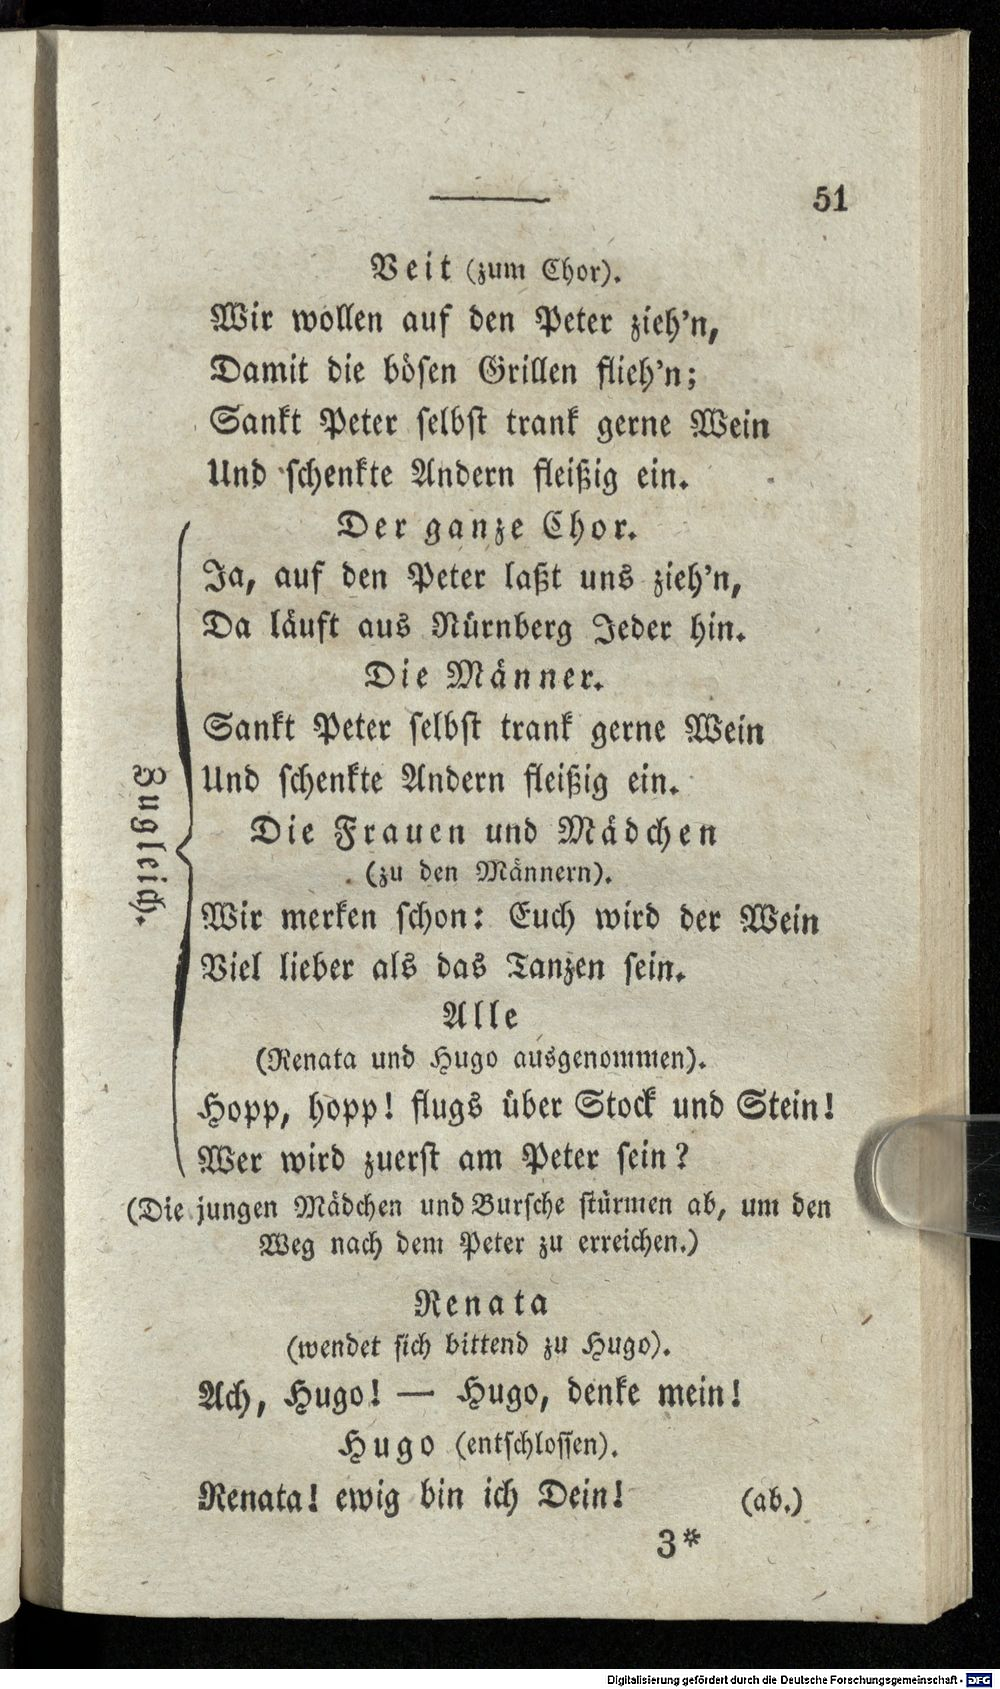 51
Veit (zum Chor).
Wir wollen auf den Peter zieh'n,
Damit die bösen Grillen flieh'n;
Sankt Peter selbst trank gerne Wein
Und schenkte Andern fleißig ein.
Zugleich.
Der ganze Chor.
Ja, auf den Peter laßt uns zieh'n,
Da läuft aus Nürnberg Jeder hin.
Die Männer.
Sankt Peter selbst trank gerne Wein
Und schenkte Andern fleißig ein.
Die Frauen und Mädchen
(zu den Männern).
Wir merken schon: Euch wird der Wein
Viel lieber als das Tanzen sein.
Alle
(Renata und Hugo ausgenommen).
Hopp, hopp! flugs über Stock und Stein!
Wer wird zuerst am Peter sein?
(Die jungen Mädchen und Bursche stürmen ab, um den
Weg nach dem Peter zu erreichen.)
Renata
(wendet sich bittend zu Hugo).
Ach, Hugo! — Hugo, denke mein!
Hugo (entschlossen).
Renata! ewig bin ich Dein! (ab.)
3*
Digitalisierung gefördert durch die Deutsche Forschungsgemeinschaft - DFG